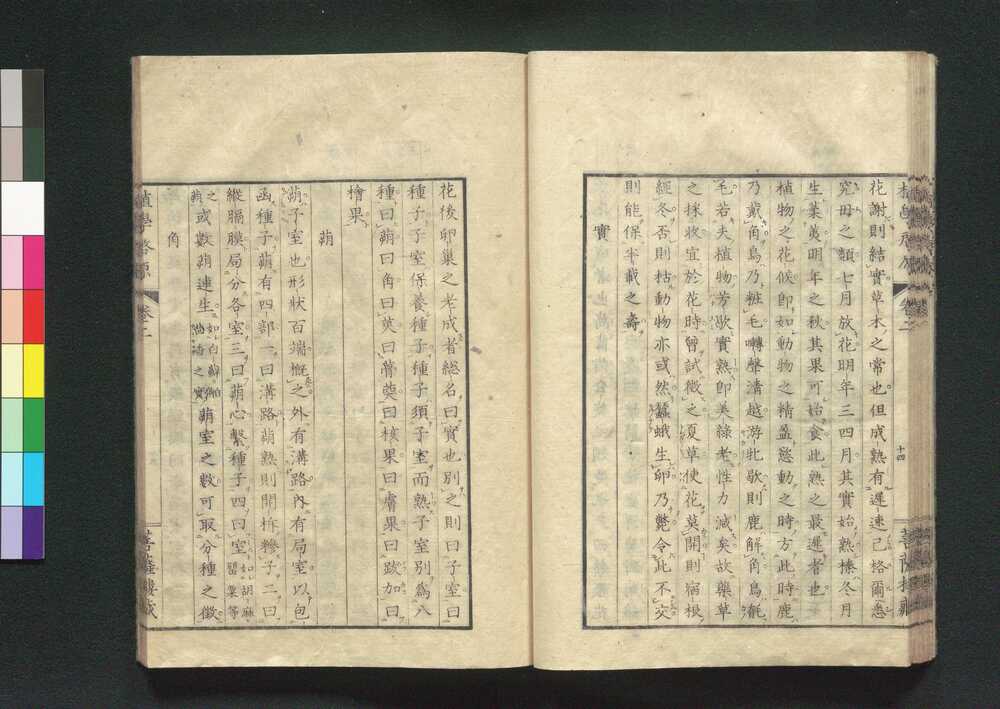 花謝則結實草木之常也但成熟有遲速已格爾悉
究毋之類七月放花明年三四月其實始熟榛冬月
生葉蕡明年之秋其果可始食此熟之最遲者也
植物之花候即如動物之精盈慾動之時方此時鹿
乃戴角鳥乃粧毛囀聲淸越游牝歇則鹿解角鳥毨
毛若夫植物芳歇實熟即美綠老性力減矣故藥草
之採收宜於花時曾試徵之夏草使花莫開則宿根
經冬否則枯動物亦或然蠶蛾生卵乃斃令此不交
則能保半載之壽
實
十四
花後卵巢之老成者総名曰實也別之則曰子室曰
種子子室保養種子種子須子室而熟子室別爲八
種曰蒴曰角曰莢曰蓇葖曰核果曰膚果曰跋加曰
檜果
蒴
蒴子室也形狀百端概之外有溝路內有局室以包
函種子蒴有四部一曰溝路蒴熟則開柝糝子二曰
縱膈膜局分各室三曰蒴心繫種子四曰室如胡麻罌粟等
之蒴或數蒴連生蒴室之數可取分種之徵
角
植學啓原
卷二
菩薩樓藏